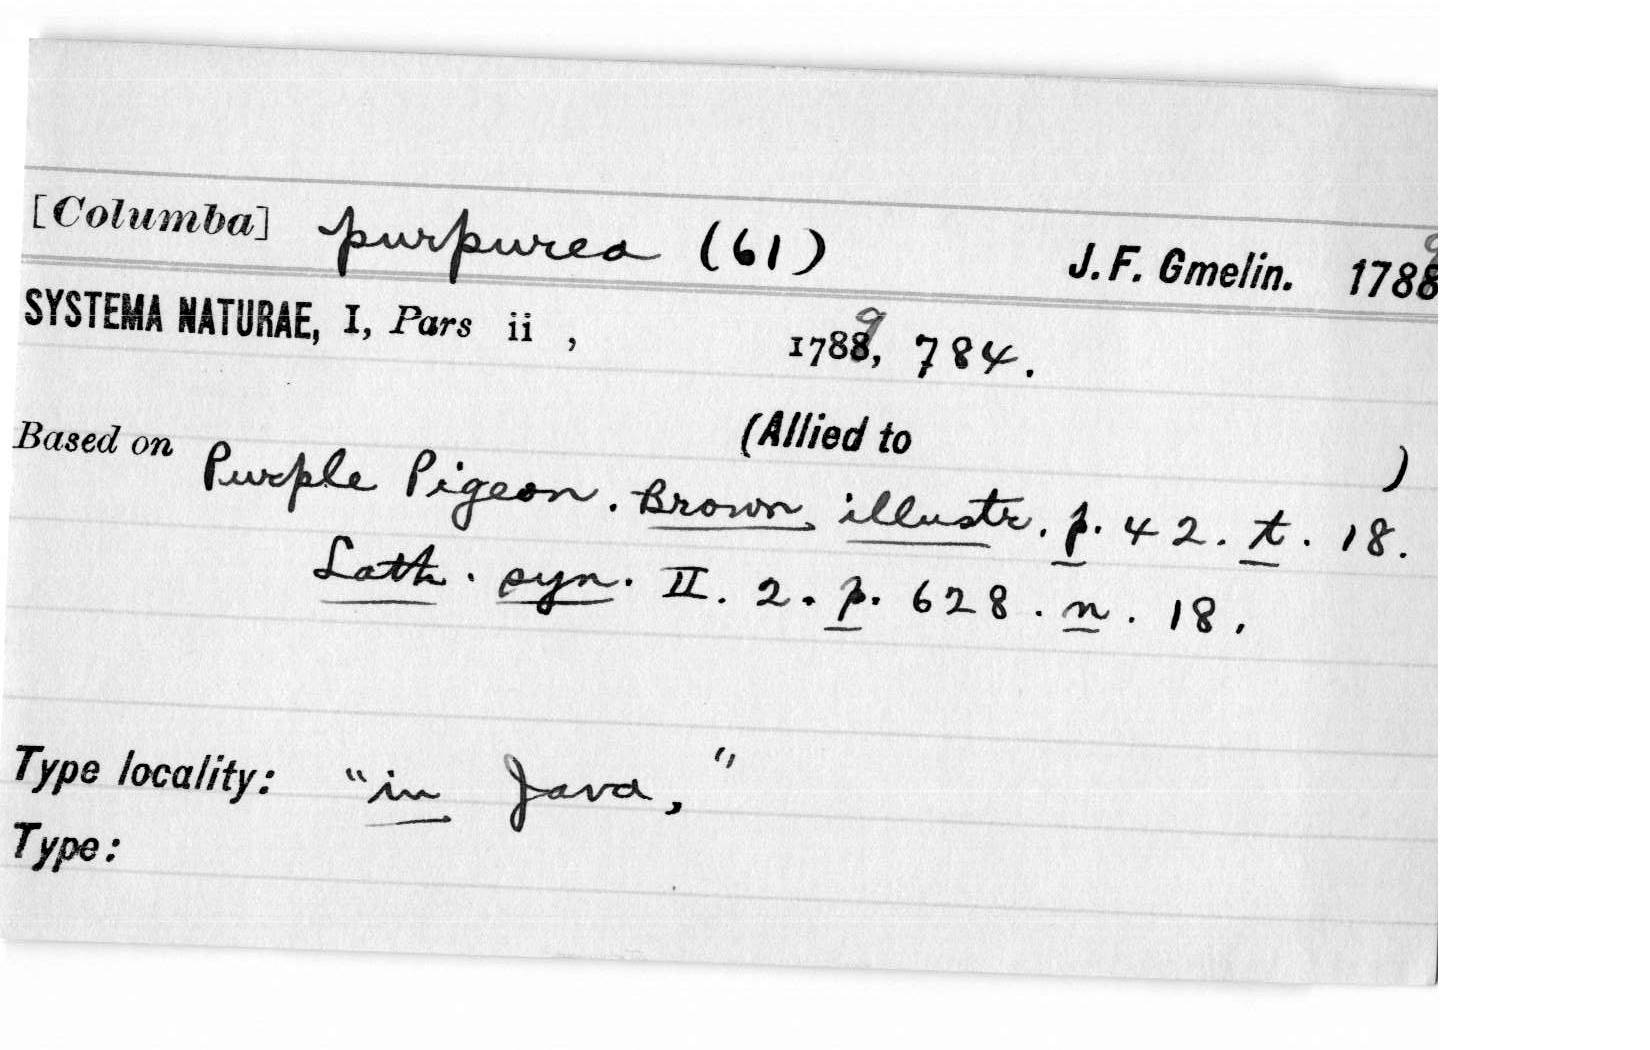 [Columba] purpurea (61) J. F. Gmelin. 1789
SYSTEMA NATURAE, I, Pars ii , 1789, 784.
(Allied to )
Based on Purple Pigeon. Brown, illustr. p. 42. t. 18.
Lath. syn. II. 2. p. 628. n. 18.
Type locality: "in Java,"
Type: